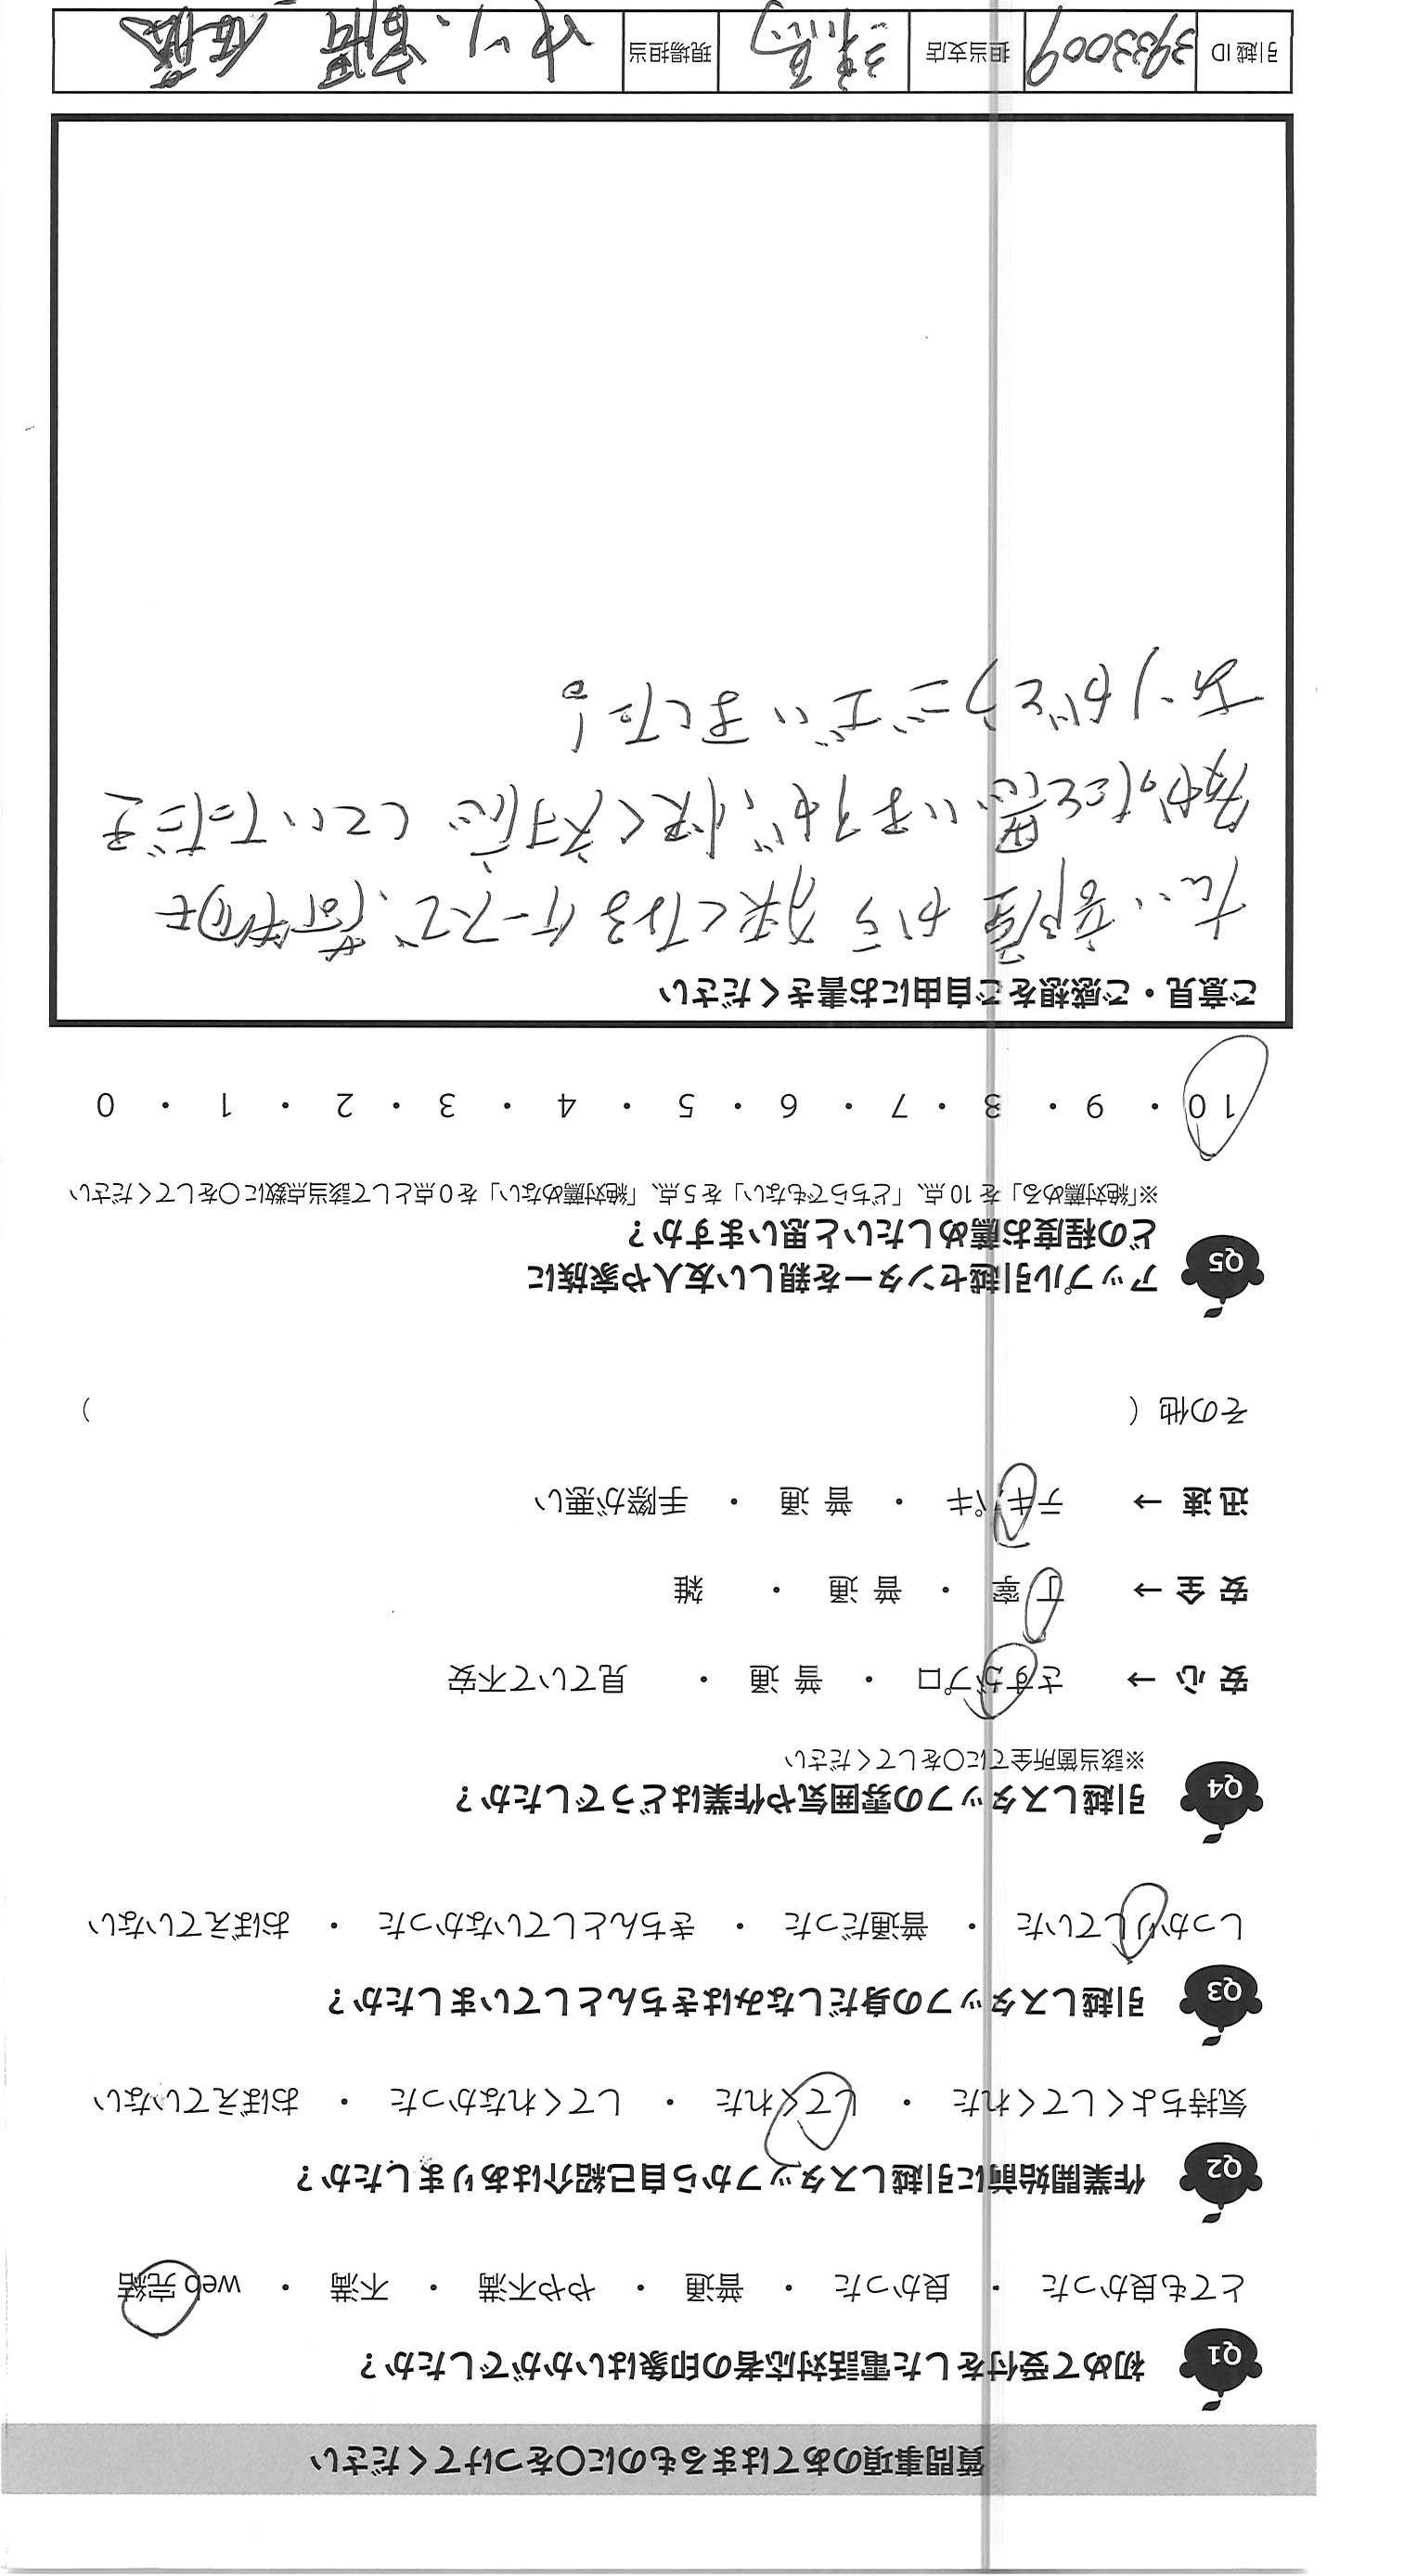 質問事項のあてはまるものに〇をつけてください
Q1 初めて受付をした電話対応者の印象はいかがでしたか？
とても良かった ・ 良かった ・ 普通 ・ やや不満 ・ 不満 ・ web 完結
Q2 作業開始前に引越しスタッフから自己紹介はありましたか？
気持ちよくしてくれた ・ してくれた ・ してくれなかった ・ おぼえていない
Q3 引越しスタッフの身だしなみはきちんとしていましたか？
しっかりしていた ・ 普通だった ・ きちんとしていなかった ・ おぼえていない
Q4 引越しスタッフの雰囲気や作業はどうでしたか？
※該当箇所全てに〇をしてください
安 心 → さすがプロ ・ 普 通 ・ 見ていて不安
安 全 → 丁 寧 ・ 普 通 ・ 雑
迅 速 → テキパキ ・ 普 通 ・ 手際が悪い
その他（ ）
Q5 アップル引越センターを親しい友人や家族に
どの程度お薦めしたいと思いますか？
※「絶対薦める」を 10 点、「どちらでもない」を 5 点、「絶対薦めない」を 0 点として該当点数に〇をしてください
10 ・ 9 ・ 8 ・ 7 ・ 6 ・ 5 ・ 4 ・ 3 ・ 2 ・ 1 ・ 0
ご意見・ご感想をご自由にお書きください
広い部屋から狭くなるケースで、荷物も
多かったと思いますが、快く対応していただき
ありがとうございました。
引越 ID 3933009 担当支店 練馬 現場担当 佐藤